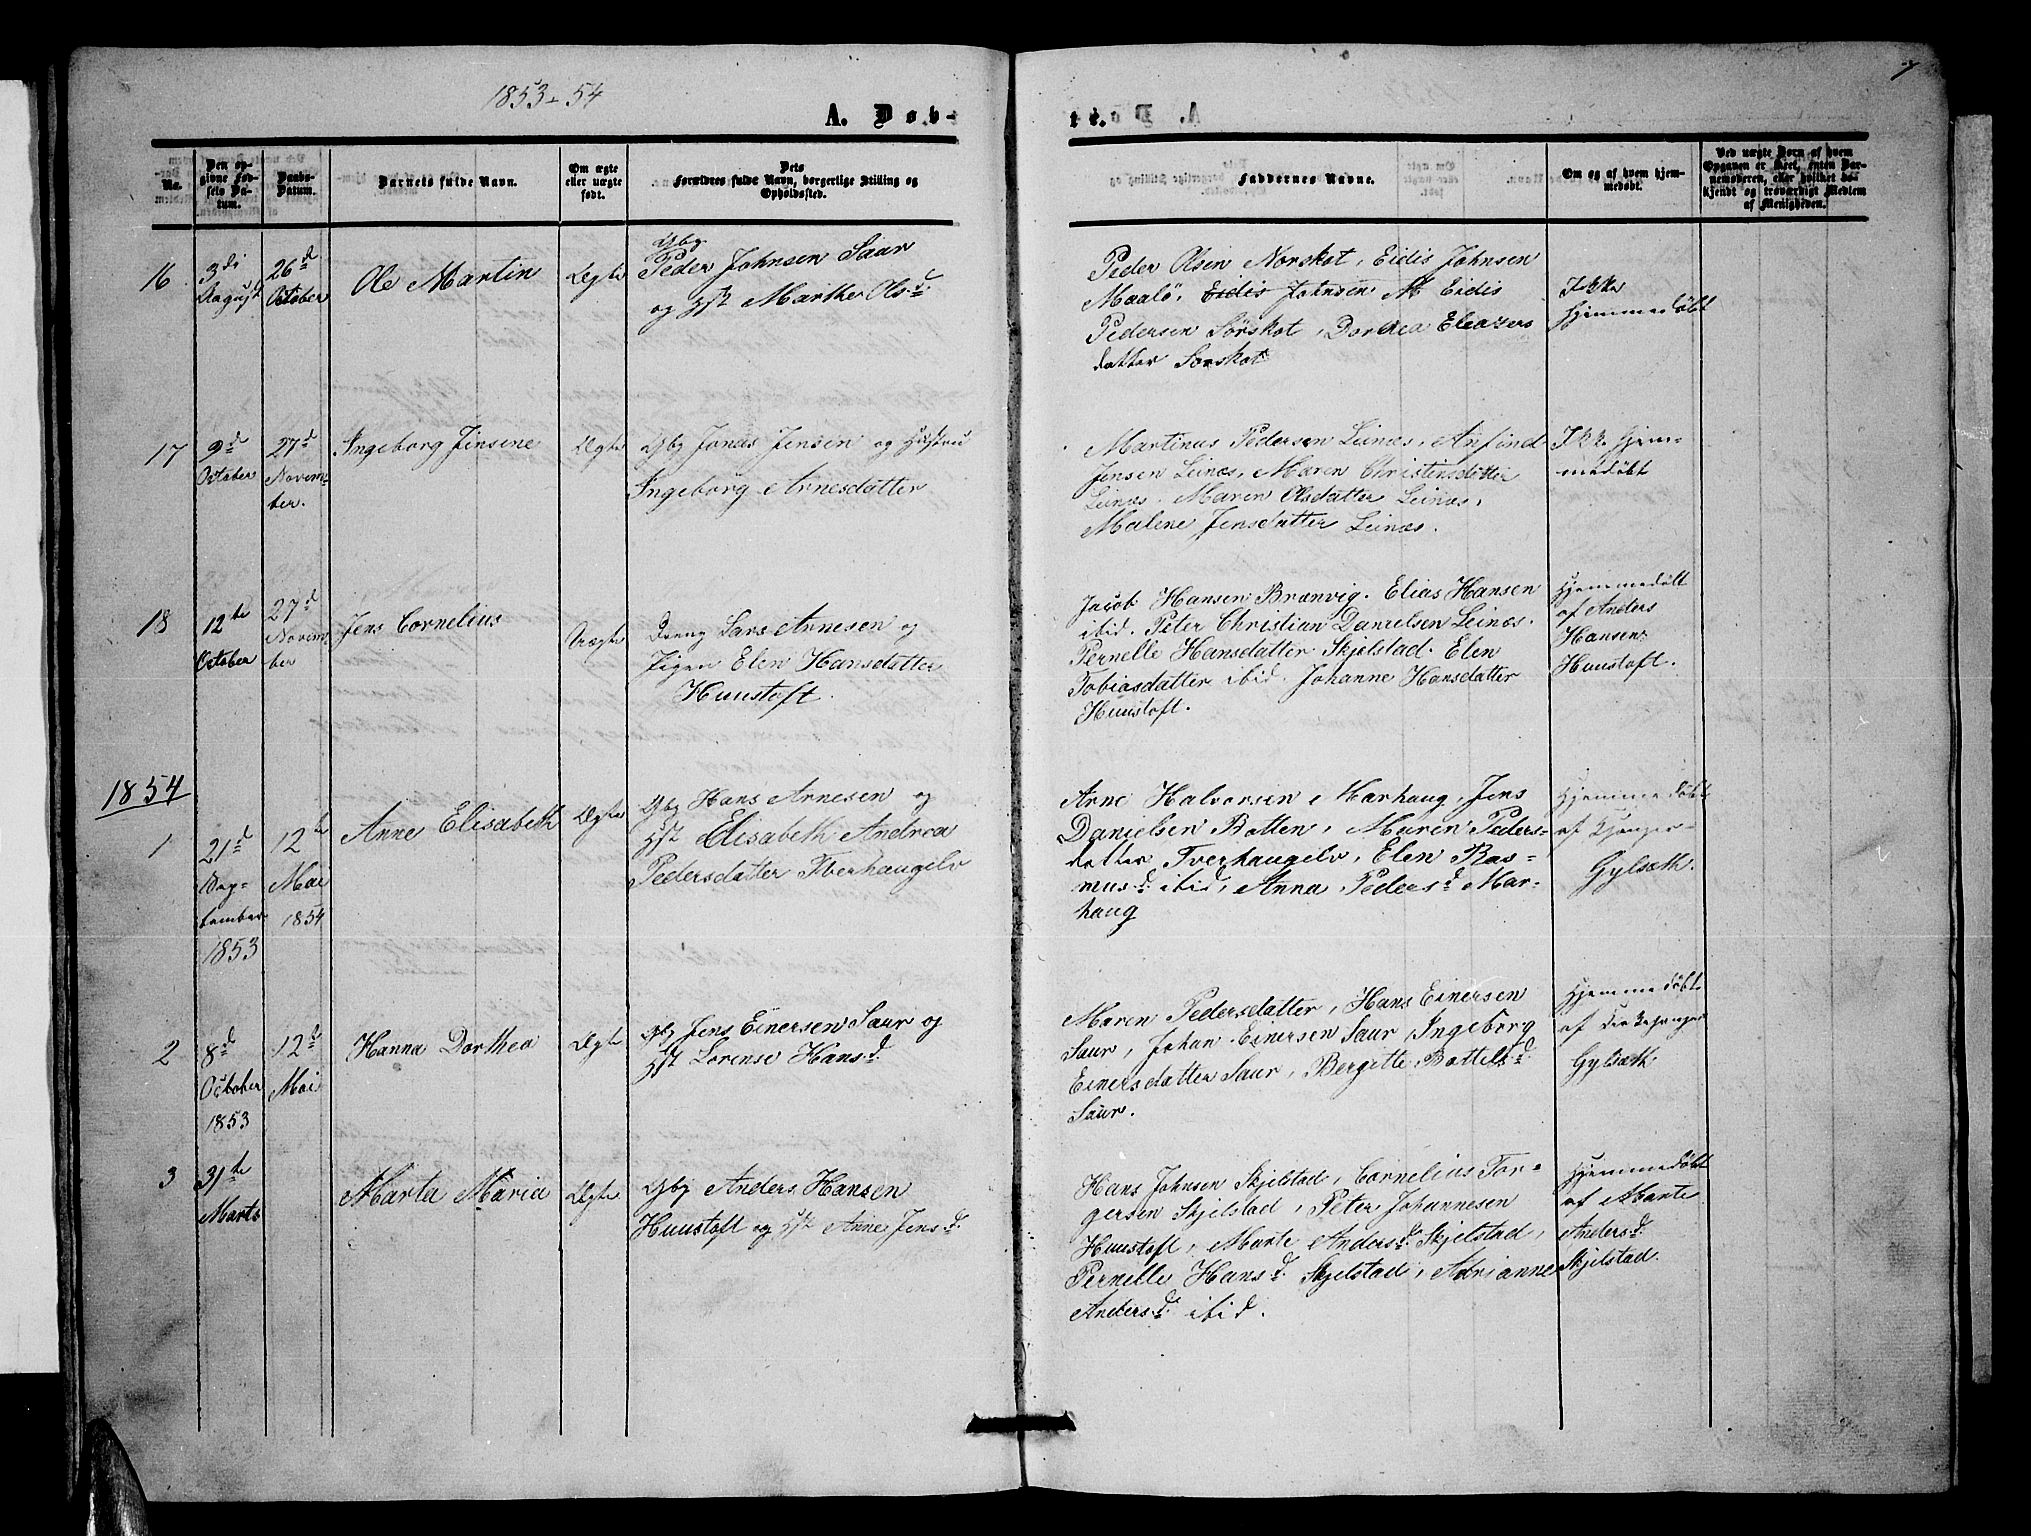 1853-54
7
A. Døb-
te.
No.
Den op-
givne Fød-
sels Da-
tum.
Daabs-
Datum.
Barnets fulde Navn.
Om ægte
eller uægte
født.
Dets
Forældres fulde Navn, borgerlige Stilling og
Opholdssted.
Faddernes Navne.
Om og af hvem hjem-
medøbt.
Ved uægte Børn af hvem
Opgaven er skeet, enten Bar-
nemoderen, eller hvilket be-
kjendt og troværdigt Medlem
af Menigheden.
16
3di
August
26d
October
Ole Martin
Ægte
Gbg
Peder Johnsen Saur
og Hst Marthe Olsd.
Peder Olsen Norskot, Eidis Johnsen
Maalö, Eidis Johnsen M Eidis
Pedersen Sörskot, Dorthea Eleazers
datter Sorskot
Ikke
Hjemmedöbt
17
9d
October
27d
Novem-
ber.
Ingeborg Jensine
Ægte
Gbg Jonas Jensen og Hustru
Ingeborg Arnesdatter
Martinus Pedersen Leinæs, Anfind
Jensen Leinæs, Maren Christinsdatter
Leinæs. Maren Olsdatter Leinæs,
Malene Jensdatter Leinæs.
Ikke hjem-
medöbt
18
12te
October
27d
Novem-
ber
Jens Cornelius
Uægte
Dreng Lars Arnesen og
Pigen Elen Hansdatter
Huustoft.
Jacob Hansen Brænvig. Elias Hansen
ibid. Peter Christian Danielsen Leinæs.
Pernelle Hansdatter Skjelstad. Elen
Tobiasdatter ibid. Johanne Hansdatter
Huustoft.
Hjemmedöbt
af Anders
Hansen
Huustoft.
1854
1
21d
Sep-
tember
1853
12te
Mai
1854
Anne Elisabeth
Ægte
Gbg Hans Arnesen og
Hst Elisabeth Andrea
Pedersdatter Tverhaugelv
Arne Halvorsen Marhaug, Jens
Danielsen Botten, Maren Peders-
datter Tverhaugelv, Elen Ras-
musd. ibid, Anna Pedersd Mar-
haug
Hjemmedöbt
af
Gylseth.
2
8d
October
1853
12d
Mai
Hanna Dorthea
Ægte
Gbg Jens Einersen Saur og
Hst Lorense Hansd.
Maren Pedersdatter, Hans Einersen
Saur, Johan Einersen Saur, Ingeborg
Einersdatter Saur, Bergitte Bottelsd
Saur.
Hjemmedöbt
af
Gylseth
3
31te
Marts
Marta Maria
Ægte
Gbg Anders Hansen
Huustoft og Hst Anne Jensd.
Hans Johnsen Skjelstad, Cornelius Tor-
gersen Skjelstad, Peter Johannesen
Huustoft, Marte Andersd. Skjelstad,
Pernelle Hansd. Skjelstad, Adrianne
Andersd. ibid.
Hjemmedöbt
af Marte
Andersd.
Skjelstad.